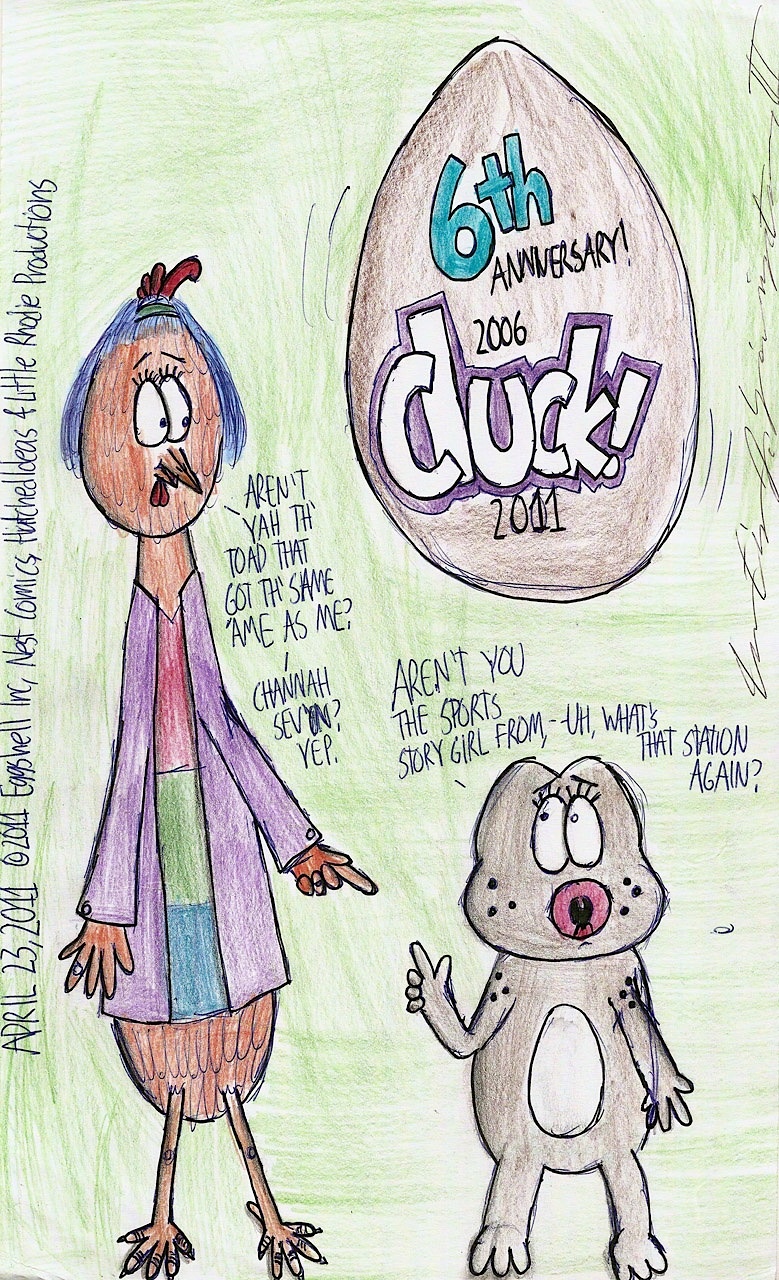 6th
ANNVERSARY!
2006
cluck!
2011
AREN'T
YAH TH'
TOAD THAT
GOT TH' SAME
'AME AS ME?
CHANNAH
SEV'N?
YEP.
AREN'T YOU
THE SPORTS
STORY GIRL FROM,--UH, WHAT'S
THAT STATION
AGAIN?
APRIL 23, 2011 ©2011 Eggshell Inc, Nest Comics Hatched Ideas & Little Rhodie Productions